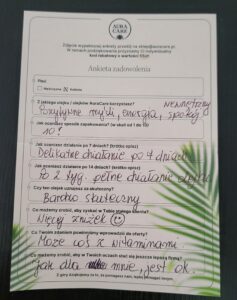 AURA
CARE
Zdjęcie wypełnionej ankiety prześlij na
W ramach podziękowania przyznamy Ci indywidualny
kod rabatowy o wartości
Ankieta zadowolenia
Płeć
Mężczyzna
Kobieta
Z jakiego olejku / olejków AuraCare korzystasz?
wewnętrzny
Pozytywne myśli, energia, spokój
Jak oceniasz sposób zapakowania? (w skali od 1 do 10)
10!
Jak oceniasz działanie po 7 dniach? (krótko opisz)
Delikatne działanie po 4 dniach
Jak oceniasz działanie po 14 dniach? (krótko opisz)
Po 2 tyg. pełne działanie
Czy ten olejek uznajesz za skuteczny?
Bardzo skuteczny
Co możemy zrobić, aby zyskać w Tobie stałego klienta?
Więcej zniżek
Co Twoim zdaniem powinniśmy wprowadzić do oferty?
Może coś z witaminami
Co możemy zrobić, aby w Twoich oczach stać się lepszą firmą?
Jak dla mnie, jest ok.
Z góry dziękujemy za to, że pomagasz nam, lepiej pomagać innym.